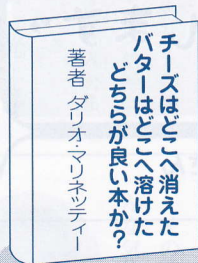 チーズはどこへ消えた
バターはどこへ溶けた
どちらが良い本か?
著者 ダリオ・マリネッティー